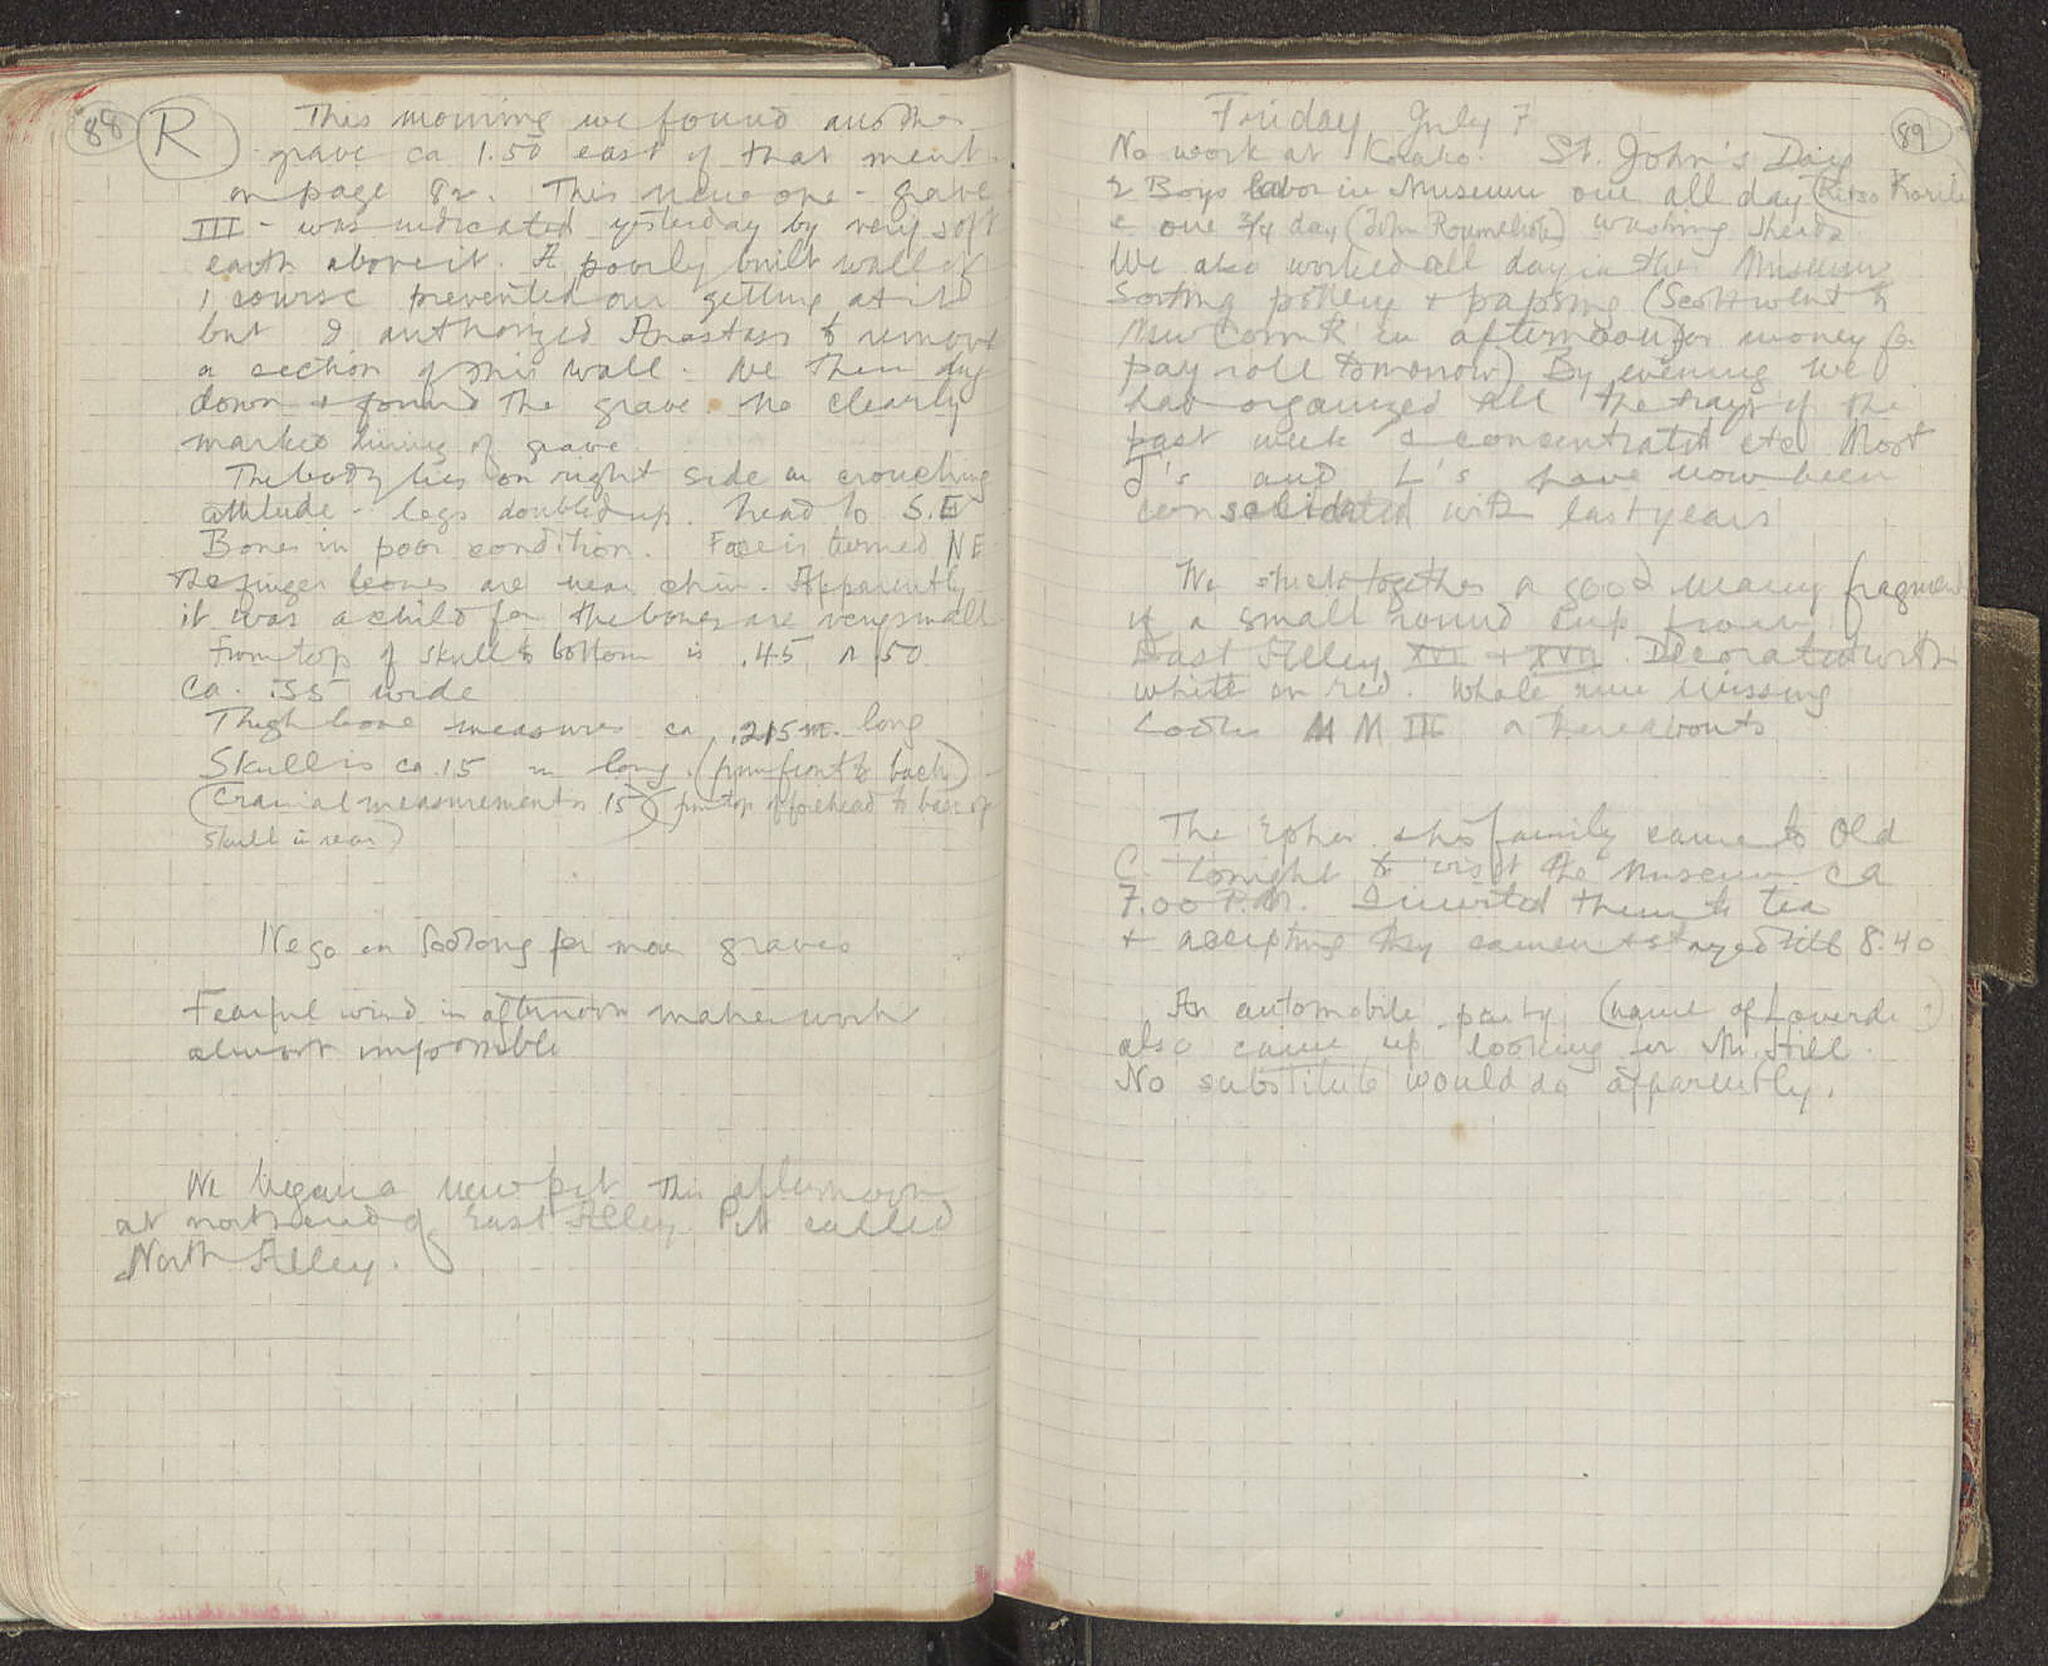 88 R
This morning we found another
grave ca 1.50 east of that ment.
on page 82. This new one - grave
III - was indicated yesterday by very soft
earth above it. A poorly built wall of
1 course prevented our getting at it
but I authorized Anastasi to remove
a section of this wall. We then dug
down & found the grave. No clearly
marked lining of grave
The body lies on right side in crouching
attitude - legs doubled up. head to S.E
Bones in poor condition. Face is turned NE
The finger bones are near chin. Apparently
it was a child for the bones are very small
From top of skull to bottom is .45 or .50
ca. .35 wide
Thigh bone measures ca .215 m. long
Skull is ca .15 m long. (from front to back)
(Cranial measurement is 15) (from top of forehead to base of
skull in rear)
We go on looking for more graves
Fearful wind in afternoon makes work
almost impossible
We began a new pit this afternoon
at north end of East Alley. Pit called
North Alley.
89
Friday, July 7
No work at Korako. St. John's Day
2 Boys labor in Museum one all day (
& one 3/4 day (John Roumeliotis) washing sherds
We also worked all day in the Museum
Sorting pottery & papsing (Scott went to
New Corinth in afternoon for money for
pay roll tomorrow) By evening we
had organized all the trays of the
past week & concentrated etc Most
J's and L's have now been
consolidated with last years
We stuck together a good many fragments
of a small round cup from
East Alley XVI + XVII. Decorated with
white on red. Whole rim missing
Looks MM III or thereabouts
The Ephor & his family came to Old
C. tonight to visit the Museum ca
7.00 P.M. I invited them to tea
& accepting they came in & stayed till 8.40
An automobile party (name of Loverdo ?)
also came up looking for Mr. Hill.
No substitute would do apparently.